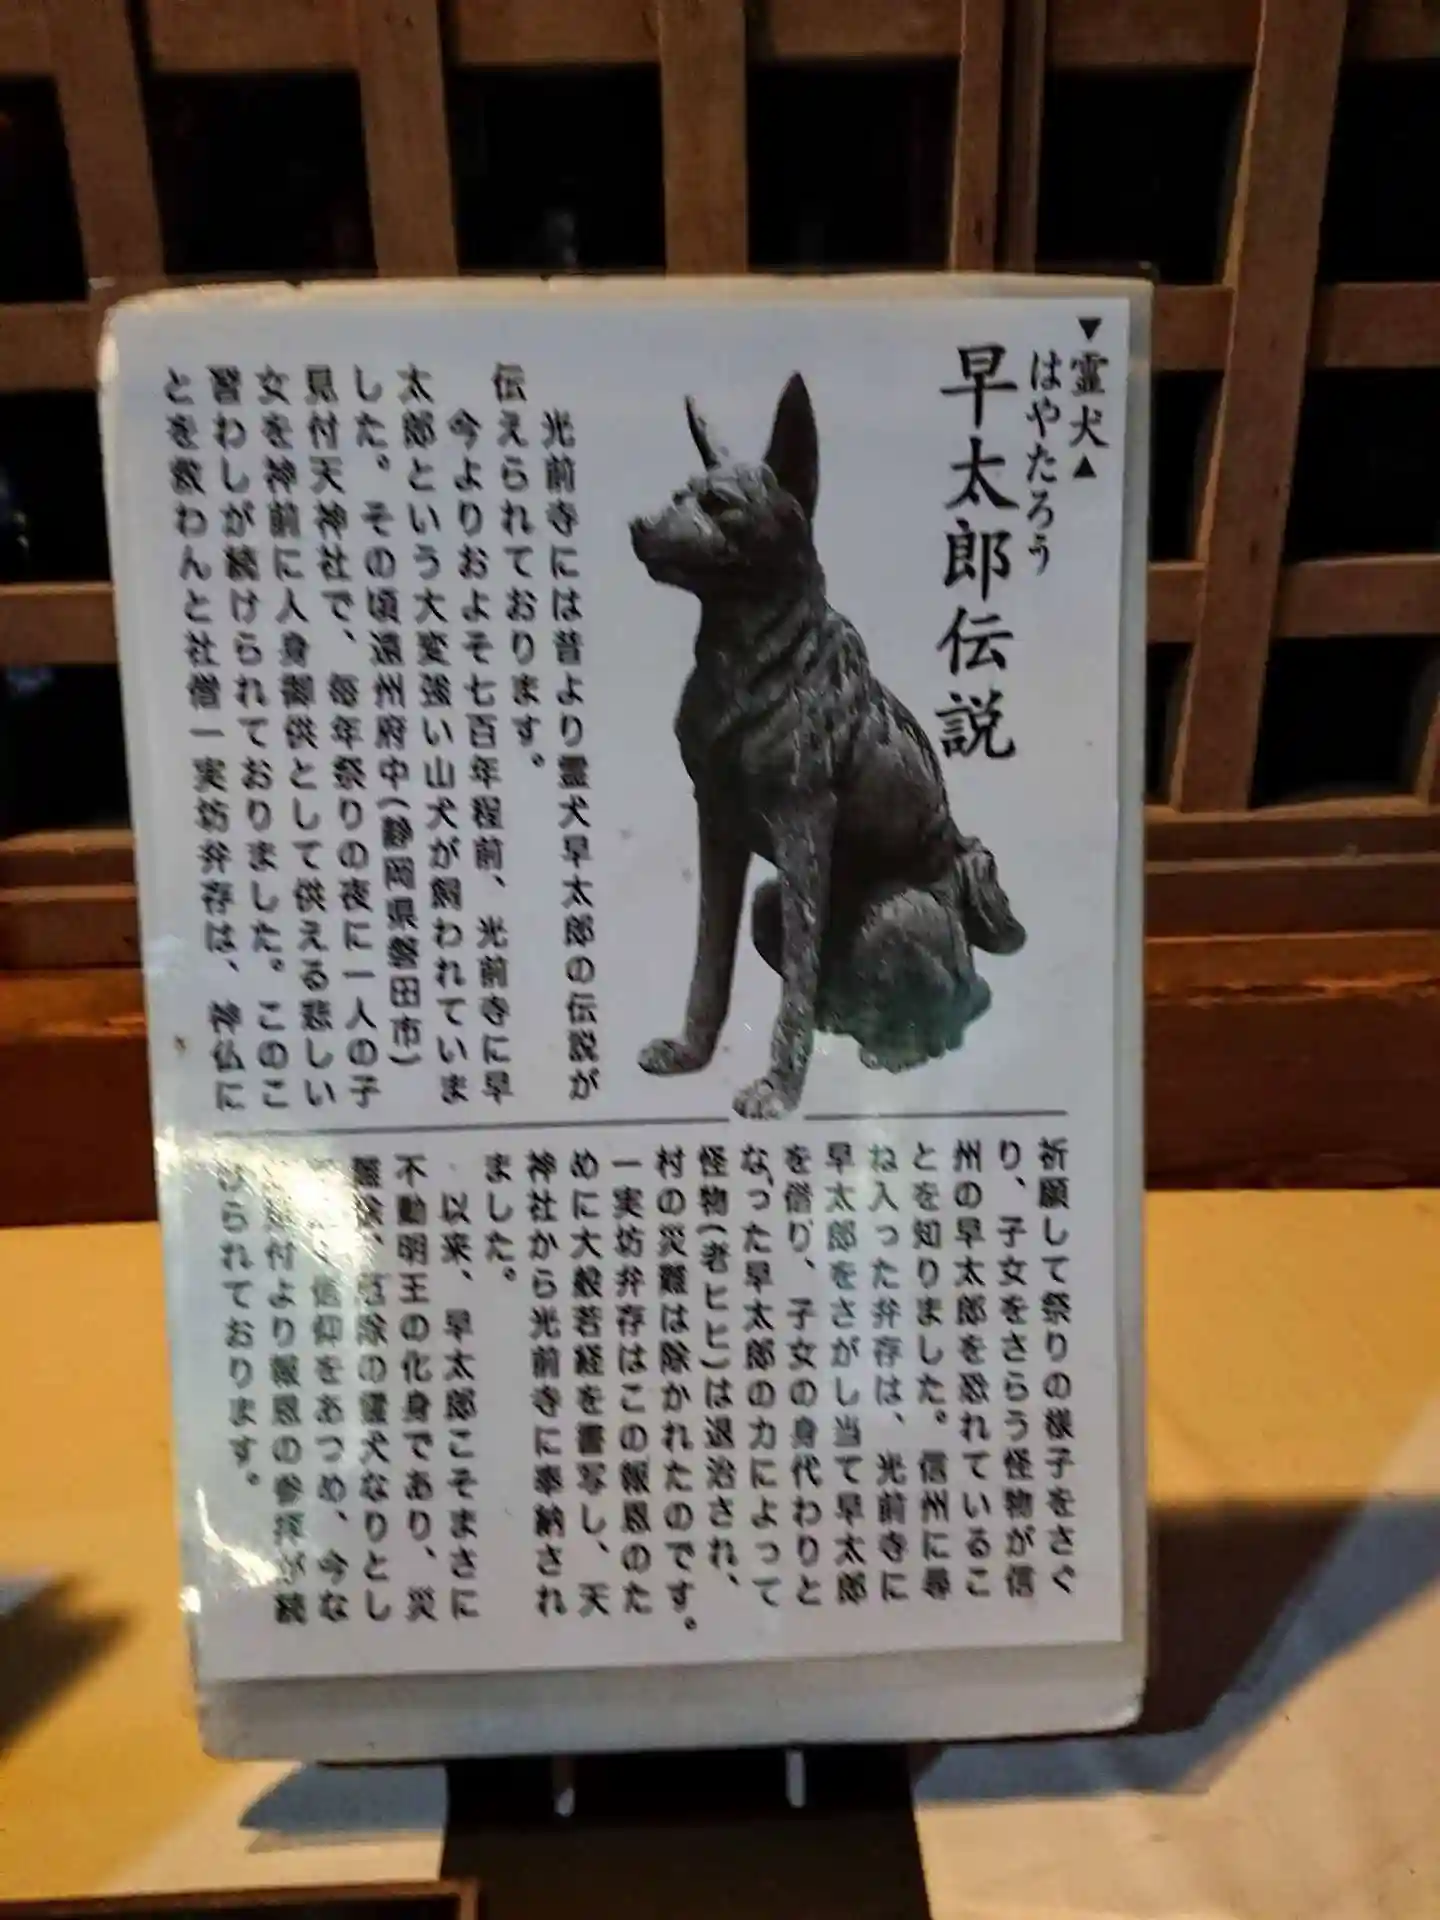 ▼霊犬▲
はやたろう
早太郎伝説
光前寺には昔より霊犬早太郎の伝説が
伝えられております。
今よりおよそ七百年程前、光前寺に早
太郎という大変強い山犬が飼われていま
した。その頃遠州府中(静岡県磐田市)
見付天神社で、毎年祭りの夜に一人の子
女を神前に人身御供として供える悲しい
習わしが続けられておりました。このこ
とを救わんと社僧一実坊弁存は、神仏に
祈願して祭りの様子をさぐ
り、子女をさらう怪物が信
州の早太郎を恐れているこ
とを知りました。信州に尋
ね入った弁存は、光前寺に
早太郎をさがし当て早太郎
を借り、子女の身代わりと
なった早太郎の力によって
怪物(老ヒヒ)は退治され、
村の災難は除かれたのです。
一実坊弁存はこの報恩のた
めに大般若経を書写し、天
神社から光前寺に奉納され
ました。
以来、早太郎こそまさに
不動明王の化身であり、災
厄除の霊犬なりとし
信仰をあつめ、今な
付より報恩の参拝が続
けられております。